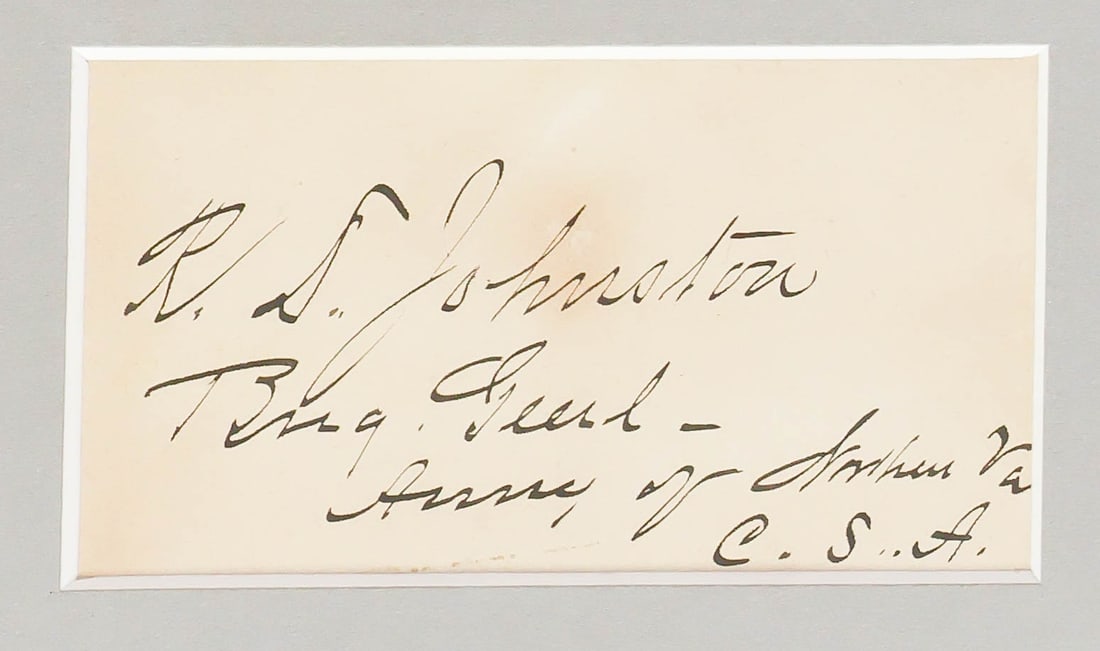 R. D. Johnston
Brig. Genl -
Army of Northern Va
C. S. A.